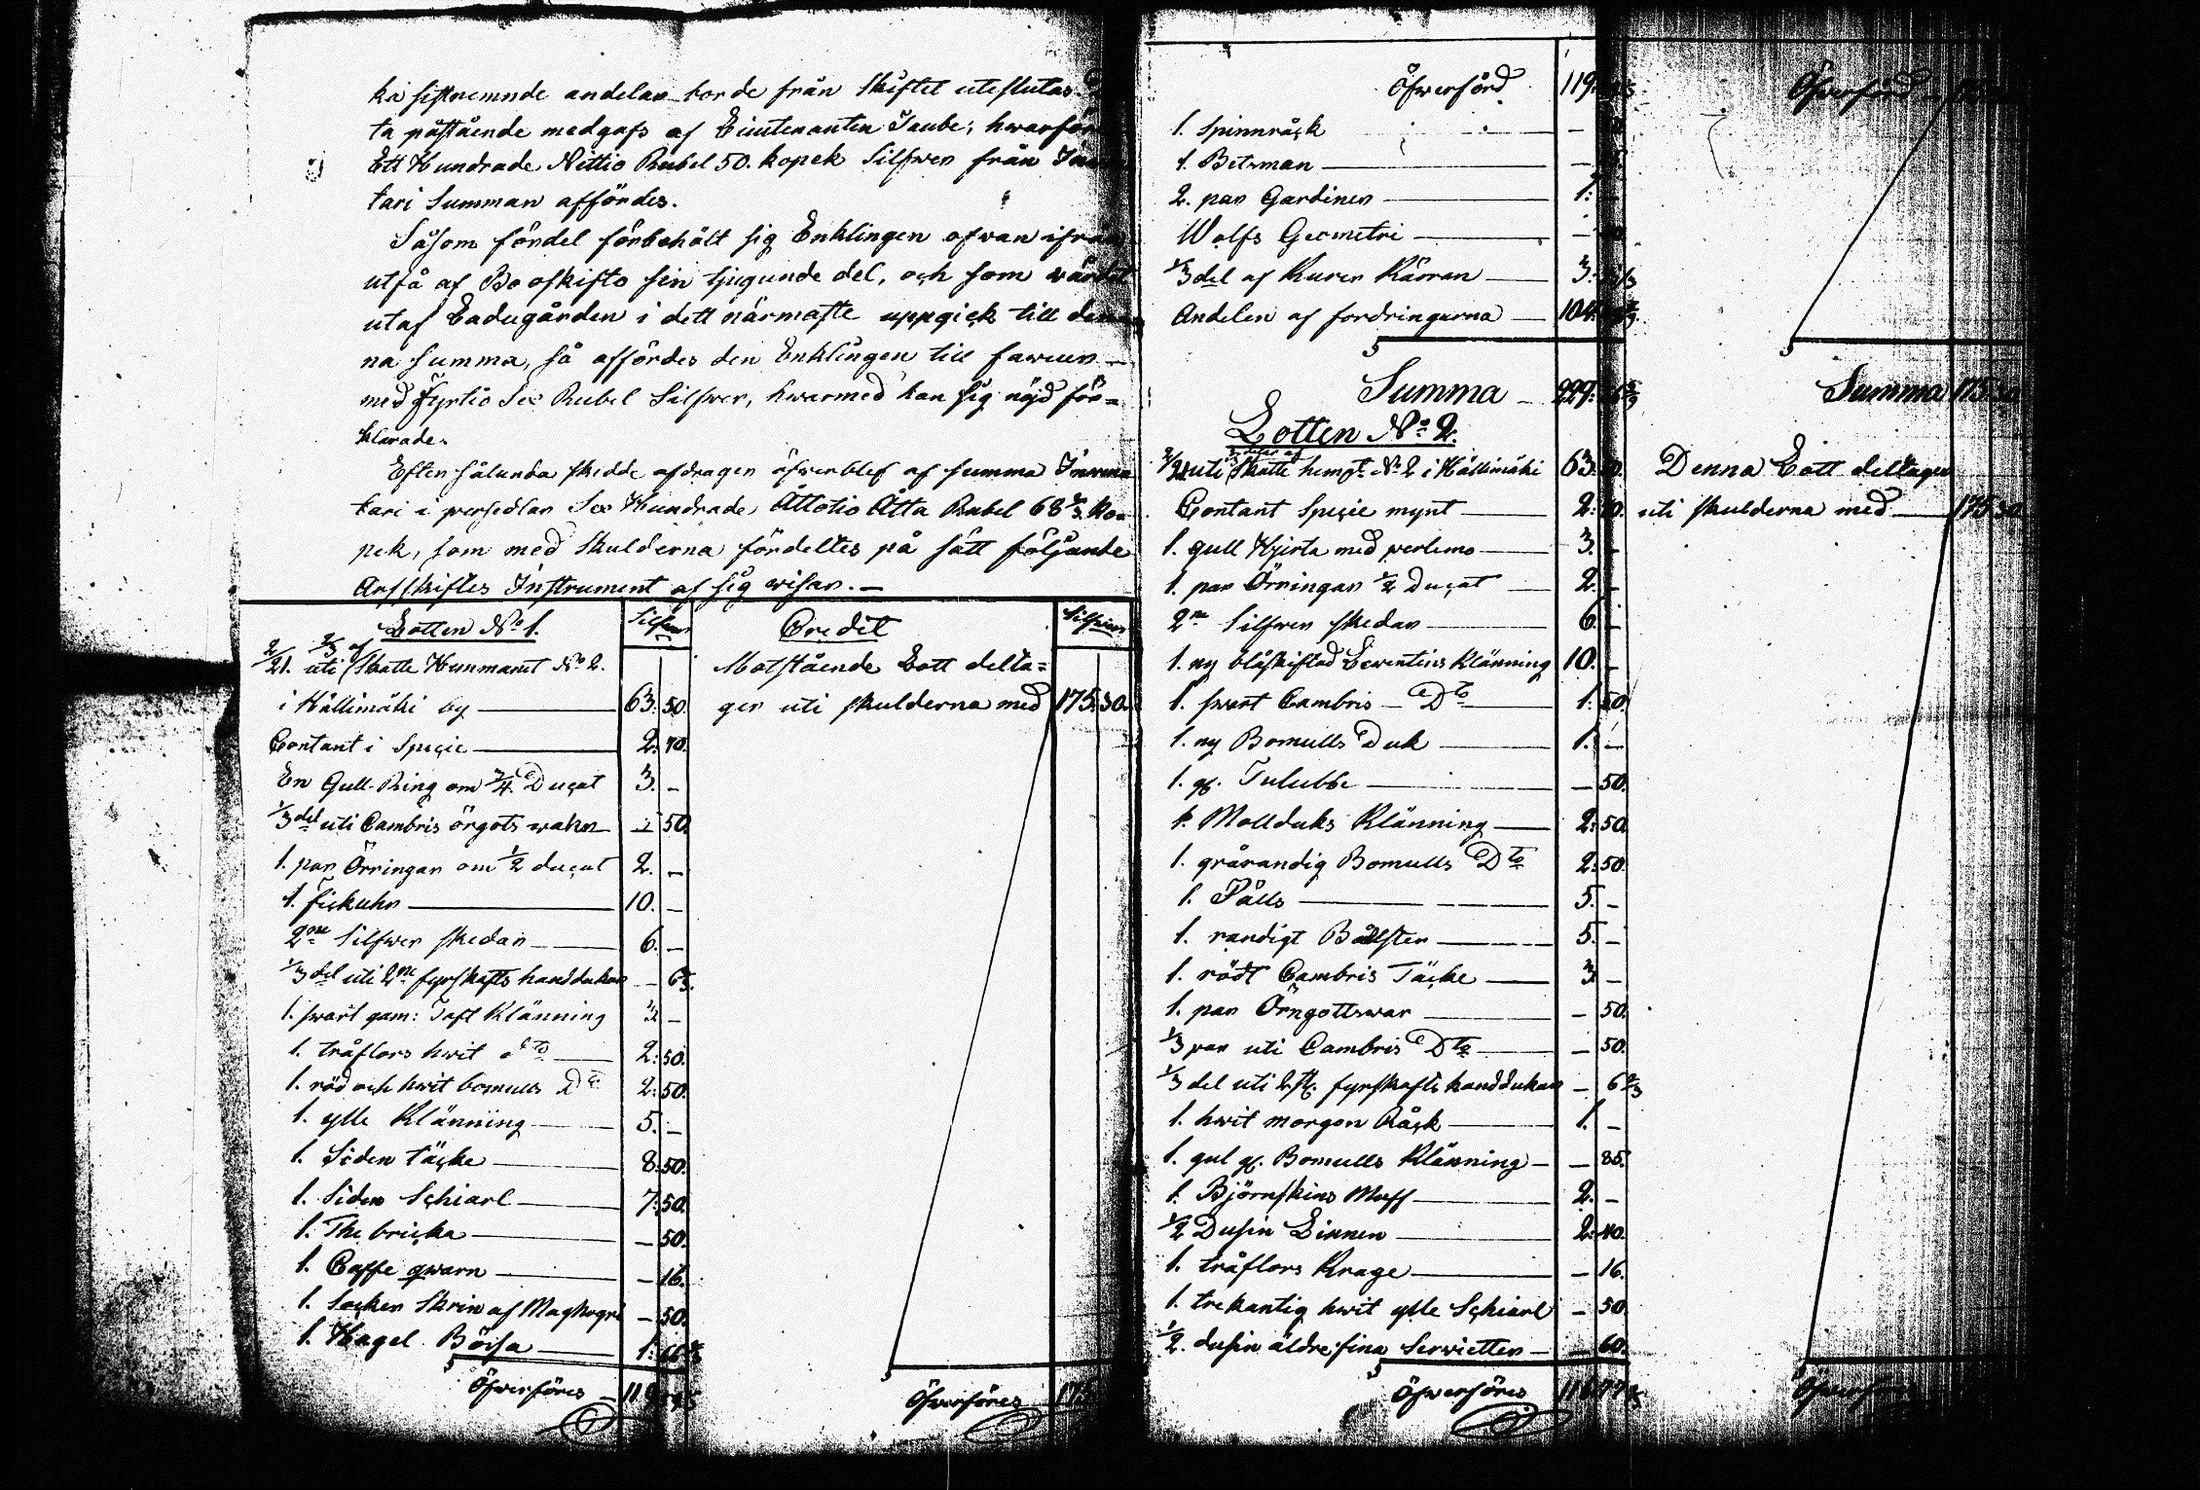 ka sistnemnde andelar borde från skiftet uteslutas.
ta påstående medgafs af Lieutenanten Taube; hwarför
Ett Hundrade Nittio Rubel 50. kopek Silfwer från Inwen
tari Summan affördes.
Såsom fördel förbehålt sig Enklingen ofwan ifrån
utfå af Bo oskifto sin tjugunde del, och som wärdet
utaf Ladugården i dett närmaste uppgick till den
na summa, så affördes den Enklingen till
med Fyrtio Sex Rubel Silfwer, hwarmed han sig nöjd för=
klarade.
Efter sålunda skedde afdragen öfwerblef af summa Inwen
tari i persedlar Sex Hundrade Åttotio Åtta Rubel 68 2/3 Ko=
pek, som med Skulderna fördeltes på sätt följande
Arfskiftes Instrument af sig wisar. —
Lotten No 1. Silfwer
2/21. uti 2/3 af Skatte Hemmanet No 2.
i Hällimäki by — 63. 50.
Contant i Speçie — 2. 40.
En Gull-Ring om 3/4 Duçat 3. —
1/3 del uti Cambris örgots warn — 50.
1. par Örringar om 1/2 duçat 2. —
1. fickuhr — 10. —
2ne Silfwer skedar — 6. —
1/3 del uti 2ne fyrskafts handdukar — 6 2/3.
1. swart gam: Taft Klänning 3. —
1. tråflors hwit dto — 2. 50.
1. röd och hwit bomulls Dto 2. 50.
1. ylle Klänning — 5. —
1. Siden täcke — 8. 50.
1. Siden Schiarl — 7. 50.
1. The bricka — 50.
1. Caffe qwarn — 16.
1. Socker Skrin af Maghogni — 50.
1. Hagel Börsa — 1. 66 2/3
Öfwerföres — 119
Credit Silfwer
Motstående Lott delta=
ger uti skulderna med 175. 30.
Öfwerföres 175
Öfwerförd 119.
1. Spinnråck —
1. Betsman —
2. par Gardiner — 1. —
Wolfs Geometri —
1/3 del af Kurer Kärran — 3.
Andelen af fordringarna — 104.
Summa — 227.
Lotten No 2.
2/21 uti Skatte hemt. No 2 i Hällimäki 63. 50.
Contant Speçie mynt — 2. 40.
1. gull Hjerta med perlemo — 3. —
1. par Örringar 1/2 Duçat — 2. —
2ne Silfwer skedar — 6. —
1. ny blåskiftad Lewentins Klänning 10. —
1. swart Cambris — Dto — 1. 50.
1. ny Bomulls Duk — 1. —
1. gl. Tulubbe — 50.
1. Mollduks Klänning — 2. 50.
1. grårandig Bomulls Dto 2. 50.
1. Fälls — 5. —
1. randigt Bolster — 5. —
1. rödt Cambris Täcke — 3 —
1. par Örngottswar — 50.
1/3 par uti Cambris Dto — 50.
1/3 del uti 2 st. fyrskafts handdukar — 6 2/3
1. hwit morgon Råck — 1. —
1. gul gl. Bomulls Klänning — 85.
1. Björnskins Muff — 2. —
1/2 Dusin Linnen — 2. 40.
1. tråflors Krage — 16.
1. trekantig hwit ylle Schiarl — 50.
1/2. dusin äldre fina Serwietter — 60.
Öfwerföres 116. 77
Öfwerförd
Summa 175. 30
Denna Lott deltager
uti skulderna med — 175. 30.